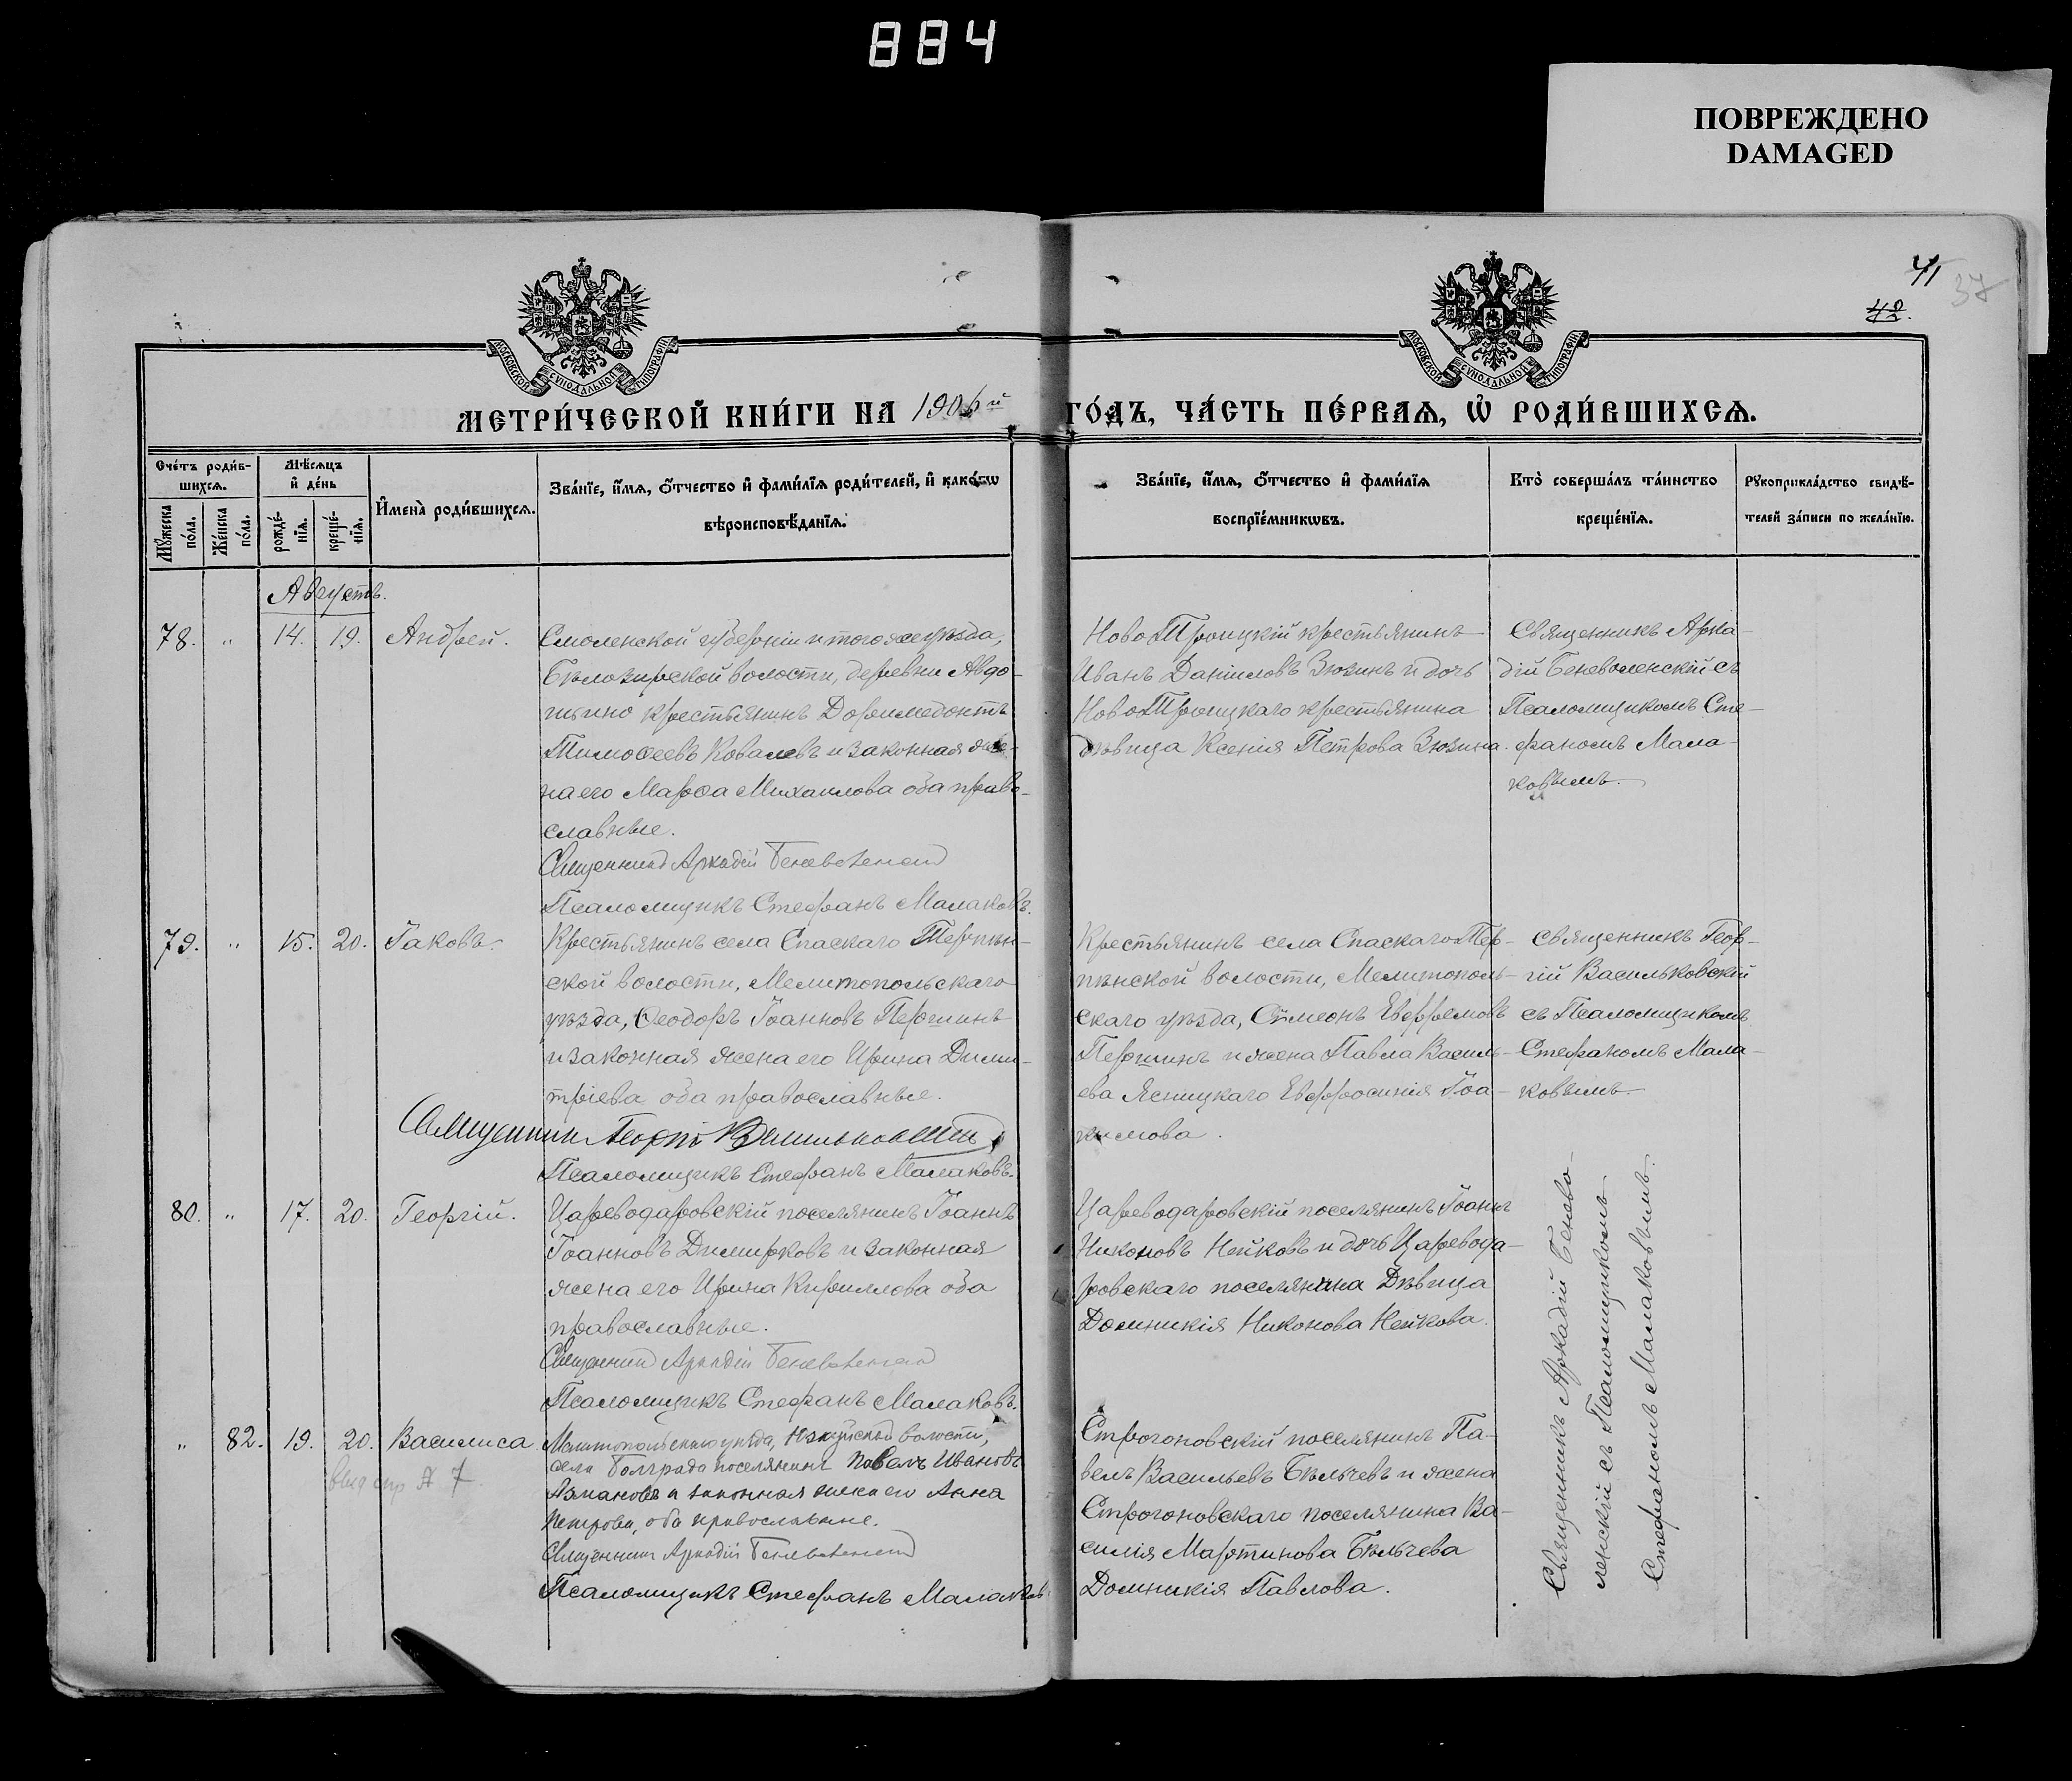 884
ПОВРЕЖДЕНО
DAMAGED
41
37
42.
МОСКОВСКОЙ СѴНОДАЛЬНОЙ ТИПОГРАФІИ
МОСКОВСКОЙ СѴНОДАЛЬНОЙ ТИПОГРАФІИ
МЕТРИ́ЧЕСКОЙ КНИ́ГИ НА 1906й ГО́ДЪ, ЧА́СТЬ ПЕ́РВАѦ, Ѡ РОДИ́ВШИХСѦ.
Сче́тъ роди́в-
шихсѧ.
Мꙋ́жеска по́ла.
Же́нска по́ла.
Мѣ́сѧцъ
и҆ де́нь
рожде́-
нїѧ.
креще́-
нїѧ.
И҆мена̀ роди́вшихсѧ.
Зва́нїе, и҆́мѧ, ѻ҆́тчество и҆ фами́лїѧ роди́телей, и҆ како́гѡ
вѣроисповѣ́данїѧ.
Зва́нїе, и҆́мѧ, ѻ҆́тчество и҆ фами́лїѧ
воспрїе́мникѡвъ.
Кто̀ соверша́лъ та́инство
креще́нїѧ.
Рꙋкоприкла́дство свидѣ́-
телей за́писи по жела́нїю.
Августъ.
78. " 14. 19. Андрей.
Смоленской губерніи и того же уѣзда,
волости, деревни Авдо-
крестьянинъ Доримедонтъ
Тимоѳеевъ Ковалевъ и законная же-
на его Марѳа Михаилова оба право-
славные.
Священникъ Аркадій Беневоленскій
Псаломщикъ Стефанъ Малаковъ.
Ново Троицкій крестьянинъ
Иванъ Даніиловъ Зюзинъ и дочь
Ново Троицкаго крестьянина
дѣвица Ксенія Петрова Зюзина.
Священникъ Арка-
дій Беневоленскій съ
Псаломщикомъ Сте-
фаномъ Мала-
ковымъ.
79. " 15. 20. Іаковъ.
Крестьянинъ села Спаскаго Терпѣн-
ской волости, Мелитопольскаго
уѣзда, Ѳеодоръ Іоанновъ Першинъ
и законная жена его Ирина Дими-
тріева оба православные.
Священникъ Георгій Васильковскій
Псаломщикъ Стефанъ Малаковъ.
Крестьянинъ села Спаскаго Тер-
пѣнской волости, Мелитополь-
скаго уѣзда, Сѵмеонъ Евфремовъ
Першинъ и жена Павла Василь-
ева Ясницкаго Евфросинія Іоа-
кимова.
Священникъ Геор-
гій Васильковскій
съ Псаломщикомъ
Стефаномъ Мала-
ковымъ.
80. " 17. 20. Георгій.
Цареводаровскій поселянинъ Іоаннъ
Іоанновъ Димирковъ и законная
жена его Ирина Кириллова оба
православные.
Священникъ Аркадій Беневоленскій
Псаломщикъ Стефанъ Малаковъ.
Цареводаровскій поселянинъ Іоаннъ
Никоновъ Нейковъ и дочь Царевода-
ровскаго поселянина Дѣвица
Домникія Никонова Нейкова.
" 82. 19. 20. Василиса.
Мелитопольскаго уѣзда, волости,
села Болграда поселянинъ Павелъ Ивановъ
Азмановъ и законная жена его Анна
Петрова, оба православные.
Священникъ Аркадій Беневоленскій
Псаломщикъ Стефанъ Малаковъ
Строгоновскій поселянинъ Па-
велъ Васильевъ Бѣльчевъ и жена
Строгоновскаго поселянина Ва-
силія Мартинова Бѣльчева
Домникія Павлова.
Священникъ Аркадій Бенево-
ленскій съ Псаломщикомъ
Стефаномъ Малаковымъ.